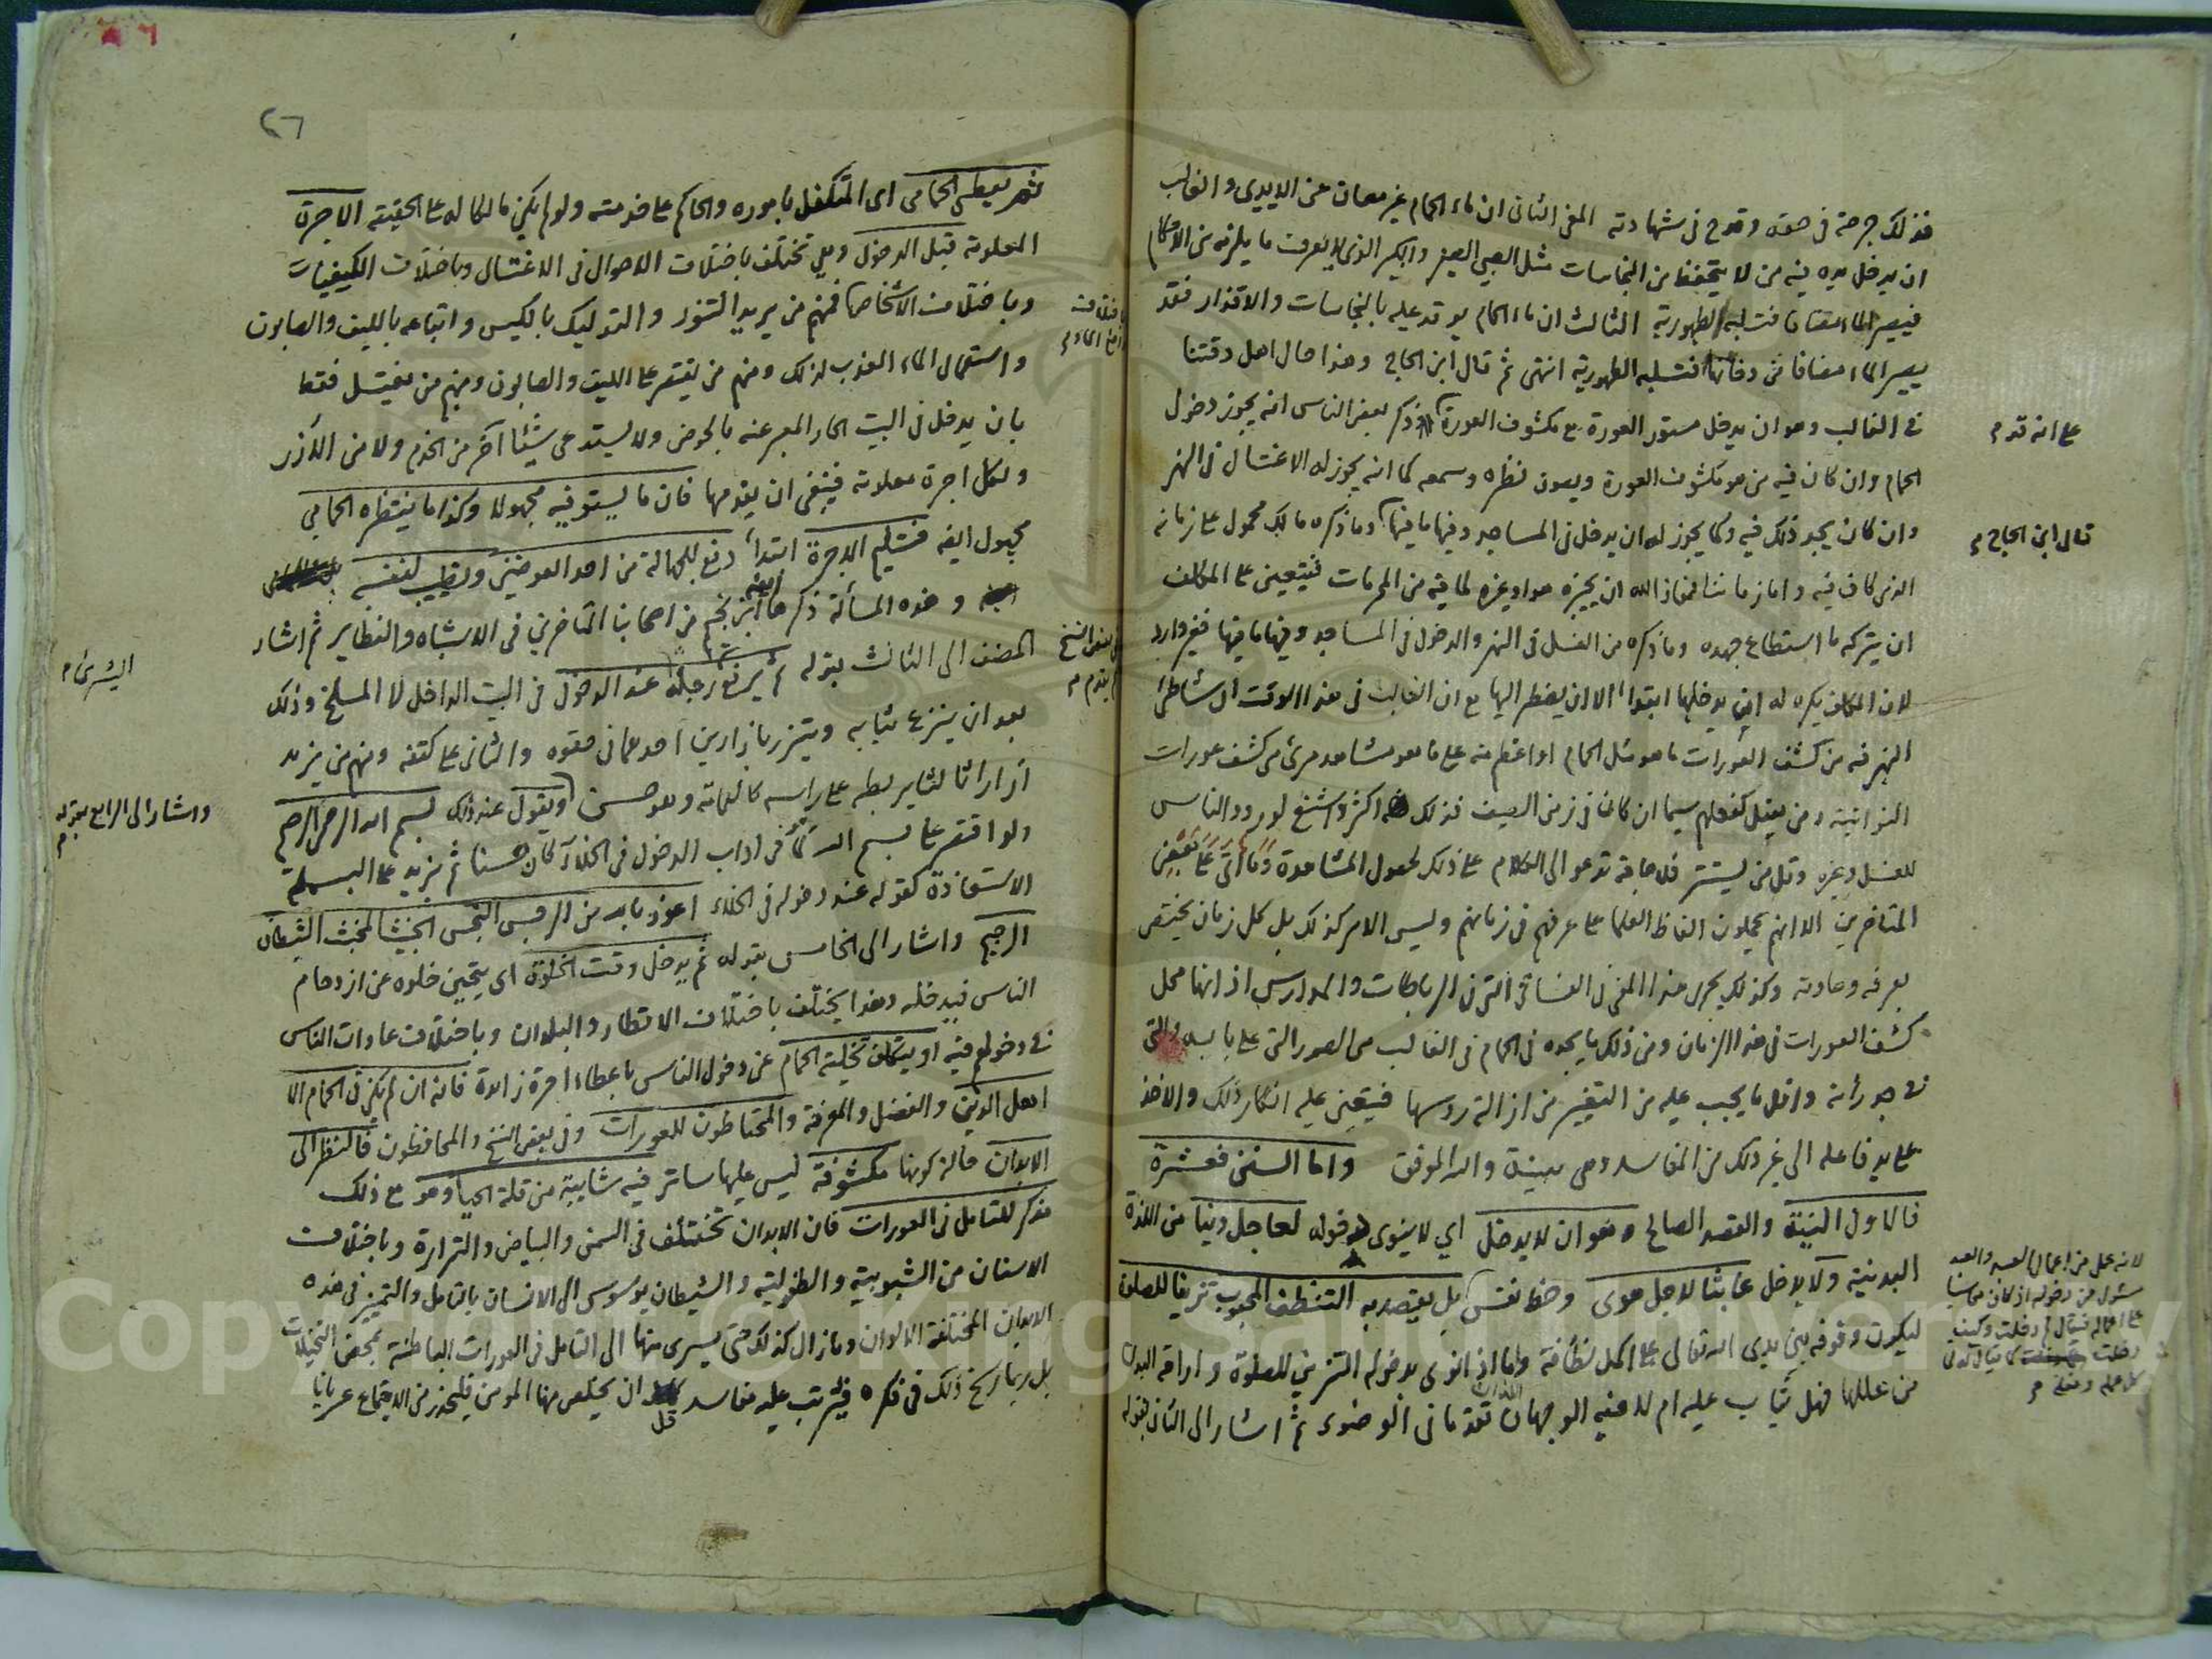 فذلك جرحة في حقه وقدح في شهادته المعنى الثاني ان ماء الحمام غير مصان عن الايدي والغالب
ان يدخل يده فيه من لا يتحفظ من النجاسات مثل الصبي الصغير والكبير الذي لا يعرف ما يلزمه من الاحكام
فيصير الماء مضافا فتسلبه الطهورية الثالث ان ماء الحمام يوقد عليه بالنجاسات والاقذار فقد
يصير الماء مضافا من دخانها فتسلبه الطهورية انتهى ثم قال ابن الحاج وهذا حال اهل وقتنا
في الغالب وهو ان يدخل مستور العورة مع مكشوف العورة وذكر بعض الناس انه يجوز دخول
على انه قدم
الحمام وان كان فيه من هو مكشوف العورة ويصون نظره وسمعه كما انه يجوز له الاغتسال في النهر
وان كان يجد ذلك فيه وكما يجوز له ان يدخل في المساجد وفيها ما فيها وما ذكره مالك محمول على زمانه
قال ابن الحاج
الذي كان فيه واما زماننا فمعاذ الله ان يجيزه هو او غيره لما فيه من المحرمات فيتعين على المكلف
ان يتركه ما استطاع جهده وما ذكره من الغسل في النهر والدخول في المساجد وفيها ما فيها فغير وارد
لان المكلف يكره له ان يدخلها ابتداء الا ان يضطر اليها مع ان الغالب في هذا الوقت ان شاطئ
النهر فيه من كشف العورات ما هو مثل الحمام او اعظم منه على ما هو مشاهد مرئي من كشف عورات
النواتية ومن يفعل كفعلهم سيما ان كان في زمن الصيف فذلك اكثر واشنع لورود الناس
للغسل وغيره وقل من يستتر فلا حاجة تدعو الى الكلام على ذلك لحصول المشاهدة وما اتى على بعض
المتاخرين الا انهم يحملون الفاظ العلماء على عرفهم في زمانهم وليس الامر كذلك بل كل زمان يختص
بعرفه وعادته وكذلك يجري هذا المعنى في الفساقي التي في الرباطات والمدارس اذ انها محل
كشف العورات في هذا الزمان ومن ذلك ما يجده في الحمام في الغالب من الصور التي على بابه والتي
في جدرانه واقل ما يجب عليه من التغيير من ازالة روسها فيتعين عليه انكار ذلك والاخذ
على يد فاعله الى غير ذلك من المفاسد وهي بينة والله الموفق واما السنن فعشرة
فالاول النية والقصد الصالح وهو ان لا يدخل اي لا ينوي دخوله لعاجل دنيا من اللذة
البدنية ولا يدخل عابثا لاجل هوى وحظ نفس بل يقصد به التنظف المحبوب تزينا للصلاة
لانه عمل من اعمال العبد والعبد
مسئول عن دخوله اذ كان محاسبا
على اعماله فيقال لم دخلت وكيف
دخلت
ليكون وقوفه بين يدي الله تعالى على اكمل نظافة واما اذا نوى بدخوله التزين للصلوة واراحة البدن
من عللها فهل يثاب عليه ام لا فيه الوجهان اللذان تقدما في الوضوء ثم اشار الى الثاني بقوله
٢٦
ثم يعطي الحمامي اي المتكفل باموره والحاكم على خدمته ولو لم يكن مالكا له على الحقيقة الاجرة
المعلومة قبل الدخول وهي تختلف باختلاف الاحوال في الاغتسال وباختلاف الكيفيات
وباختلاف الاشخاص فمنهم من يريد التنور والتدليك بالكيس واتباعه بالليف والصابون
واستعمال الماء العذب لذلك ومنهم من يقتصر على الليف والصابون ومنهم من يغتسل فقط
بان يدخل في البيت الحار المعبر عنه بالحوض ولا يستدعي شيئا آخر من الخدم ولا من الازر
ولكل اجرة معلومة فينبغي ان يقدمها فان ما يستوفيه مجهولا وكذا ما ينتظره الحمامي
مجهول ايضا فتسليم الاجرة ابتداء دفع للجهالة من احد العوضين وتطييب لنفسه
وهذه المسألة ذكرها ابن نجيم من اصحابنا المتاخرين في الاشباه والنظاير ثم اشار
المصنف الى الثالث بقوله ثم يرفع رجله عند الدخول في البيت الداخل لا المسلخ وذلك
في بعض النسخ
ثم يقدم
اليسرى
بعد ان ينزع ثيابه ويتزر بازارين احدهما في حقوه والثاني على كتفه ومنهم من يزيد
ازارا ثالثا يربطه على راسه كالعمامة وهو حسن ويقول عند ذلك بسم الله الرحمن الرحيم
واشار الى الرابع بقوله
ولو اقتصر على بسم الله كما في اداب الدخول في الخلاء لكان حسنا ثم يزيد على البسملة
الاستعاذة كقوله عند دخوله في الخلاء اعوذ بالله من الرجس النجس الخبيث المخبث الشيطان
الرجيم واشار الى الخامس بقوله ثم يدخل وقت الخلوة اي يتحين خلوه عن ازدحام
الناس فيدخله وهذا يختلف باختلاف الاقطار والبلدان وباختلاف عادات الناس
في دخولهم فيه او يتكلف تخلية الحمام عن دخول الناس باعطاء اجرة زائدة فانه ان لم يكن في الحمام الا
اهل الدين والفضل والمعرفة والمحتاطون للعورات وفي بعض النسخ والمحافظون فالنظر الى
الابدان حالة كونها مكشوفة ليس عليها ساتر فيه شايبة من قلة الحياء وهو مع ذلك
مذكر للتامل في العورات فان الابدان تختلف في السمن والبياض والترارة وباختلاف
الاسنان من الشبوبية والطفولية والشيطان يوسوس الى الانسان بالتامل والتمييز في هذه
الابدان المختلفة الالوان وما زال كذلك حتى يسري منها الى التامل في العورات الباطنة بمحض التخيلات
بل ربما رسخ ذلك في فكره فيترتب عليه مفاسد قل ان يخلص منها المومن فليحذر من الاجتماع عريانا